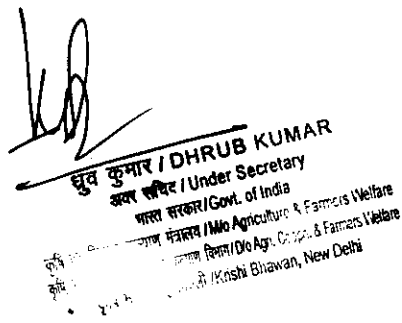 ध्रुव कुमार / DHRUB KUMAR
अवर सचिव / Under Secretary
भारत सरकार/Govt. of India
कृषि मंत्रालय / M/o Agriculture & Farmers Welfare
कृषि विभाग/D/o Agri. & Farmers Welfare
/Krishi Bhawan, New Delhi